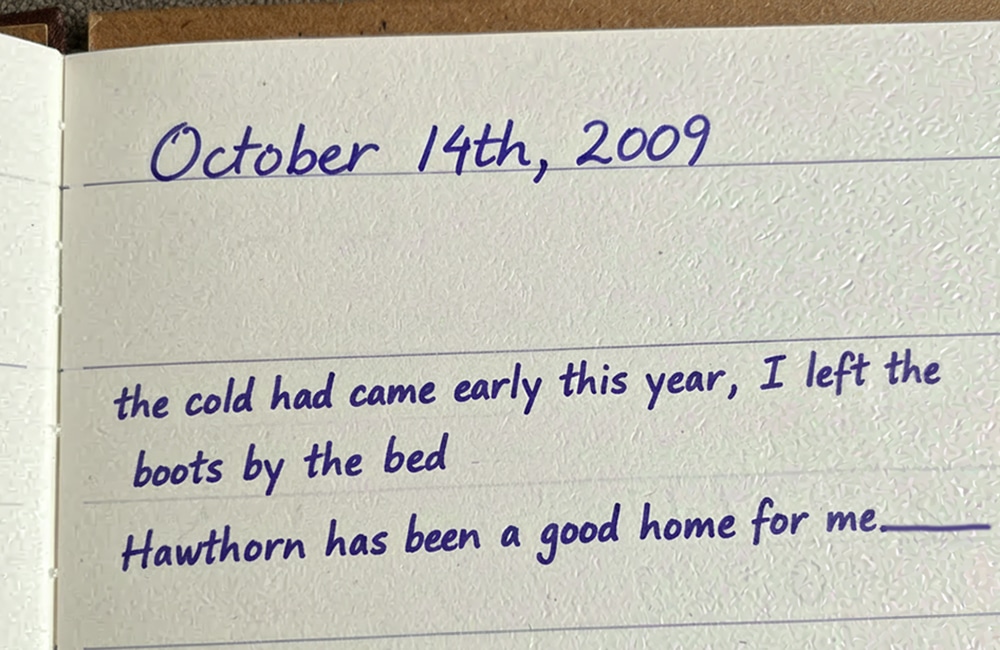 October 14th, 2009
the cold had came early this year, I left the
boots by the bed
Hawthorn has been a good home for me.